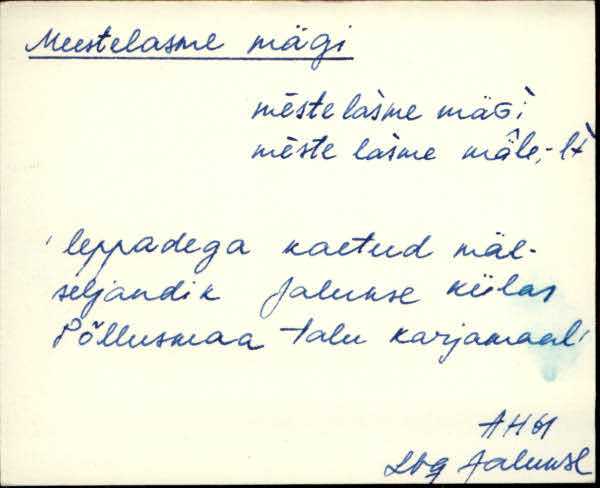 Meestelasme mägi
mēste laśme mäGi
mēste laśme mäle, -lt
'leppadega kaetud mäe-
seljandik Jalukse külas
Põllusmaa talu karjamaal'
AH 61
Jalukse